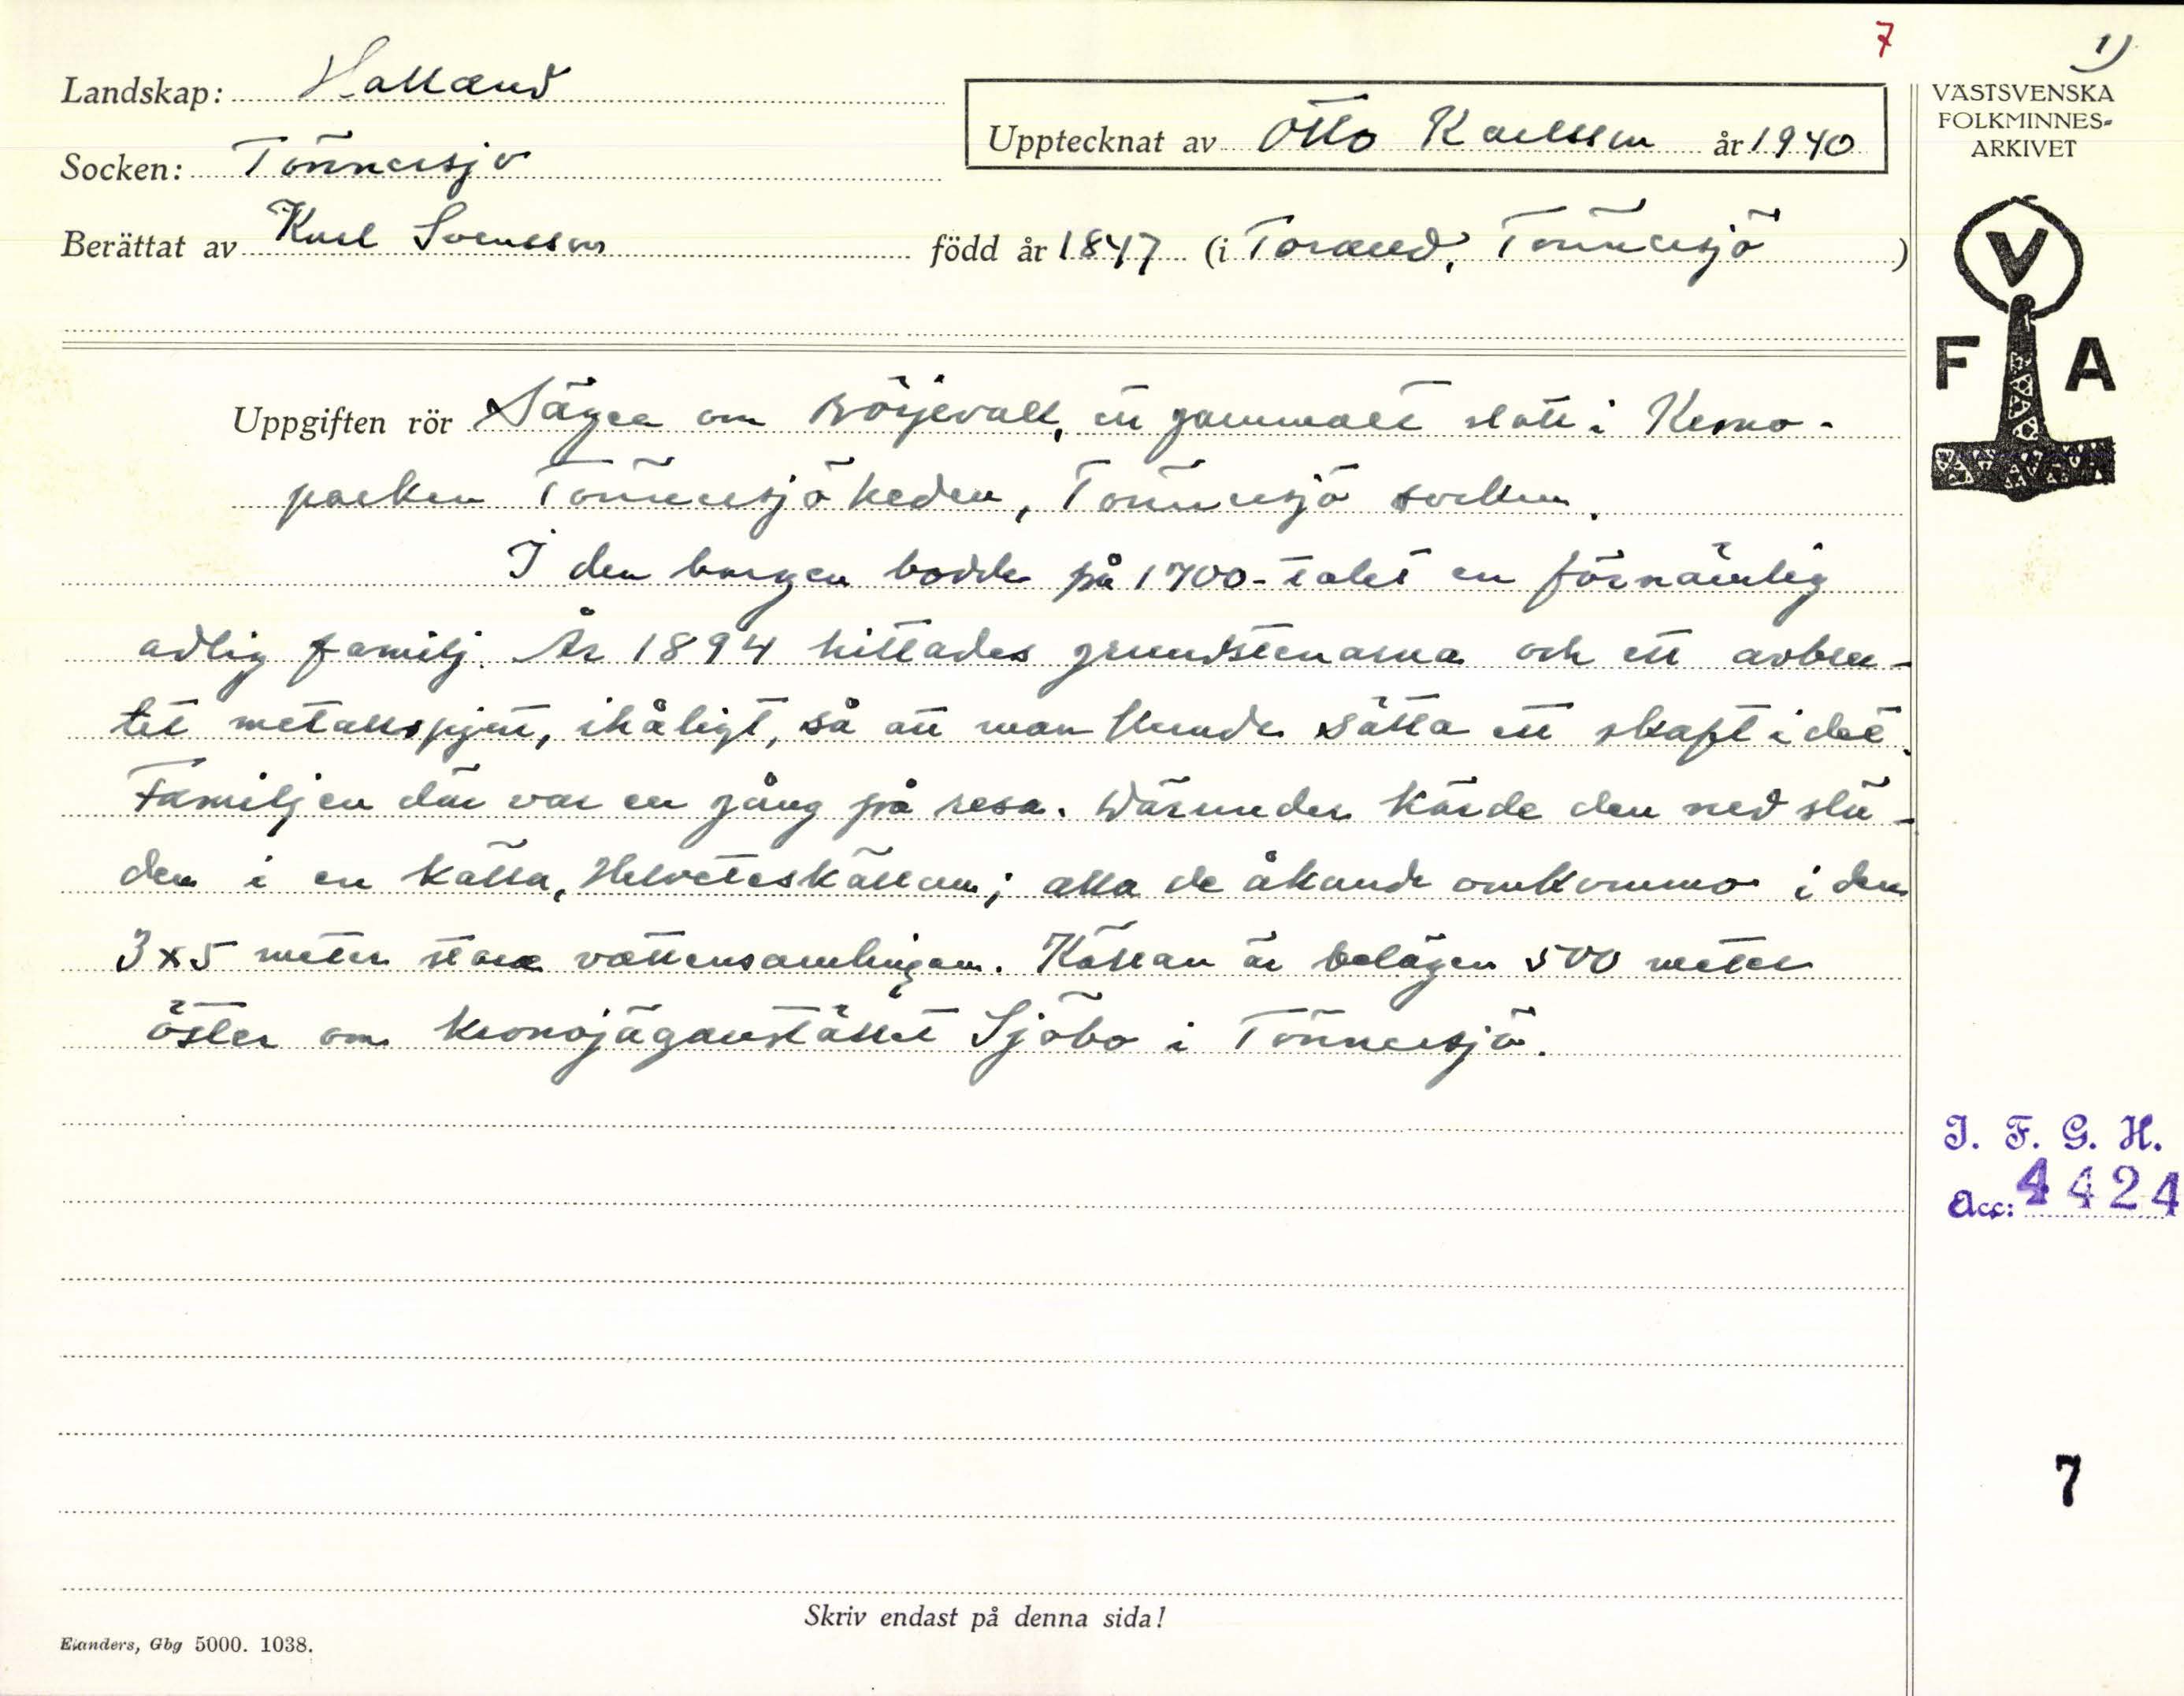 7
1)
Landskap: Halland
Upptecknat av Otto Karlsson år 1940
Socken: Tönnersjö
Berättat av Karl Svensson född år 1847 (i Torared, Tönnersjö)
VÄSTSVENSKA
FOLKMINNES-
ARKIVET
V
F A
Uppgiften rör Sägen om Börjevall, ett gammalt slott i Krono-
parken Tönnersjöheden, Tönnersjö socken.
I den borgen bodde på 1700-talet en förnämlig
adlig familj. År 1894 hittades grundstenarna och ett avbru-
tet metallspjut, ihåligt, så att man kunde sätta ett skaft i det.
Familjen där var en gång på resa. Därunder körde den ned slä-
den i en källa, Helveteskällan; alla de åkande omkommo i den
3x5 meter stora vattensamlingen. Källan är belägen 500 meter
öster om kronojägarstället Sjöbo i Tönnersjö.
I. F. G. H.
Acc: 4424
7
Skriv endast på denna sida!
Elanders, Gbg 5000. 1038.